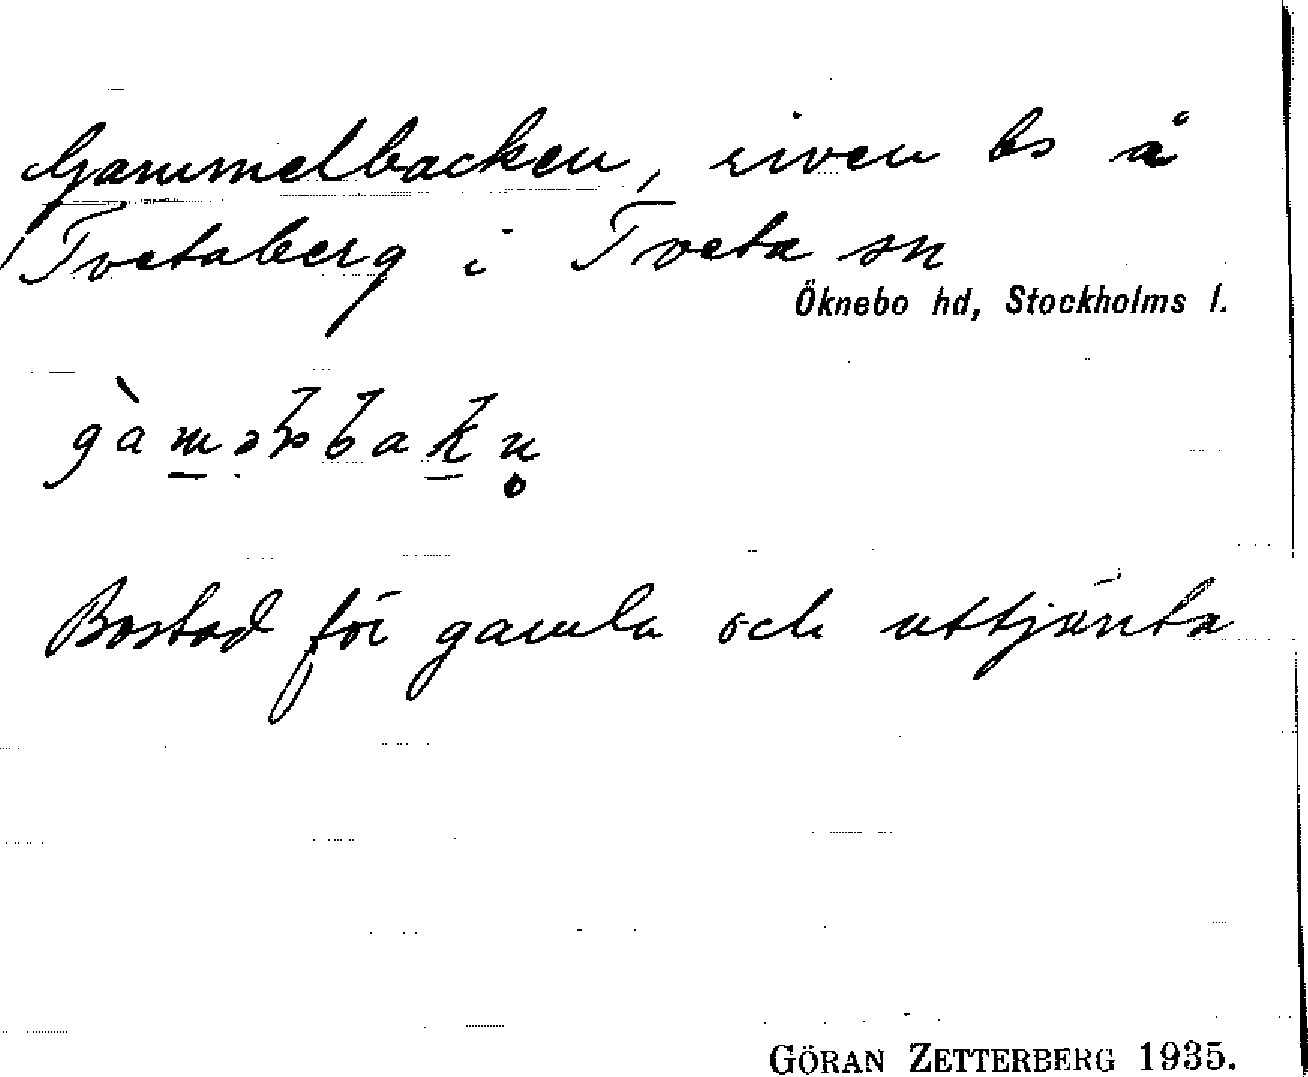 Gammelbacken, riven bs å
Tvetaberg i Tveta sn
Öknebo hd, Stockholms l.
Bostad för gamla och uttjänta
GÖRAN ZETTERBERG 1935.